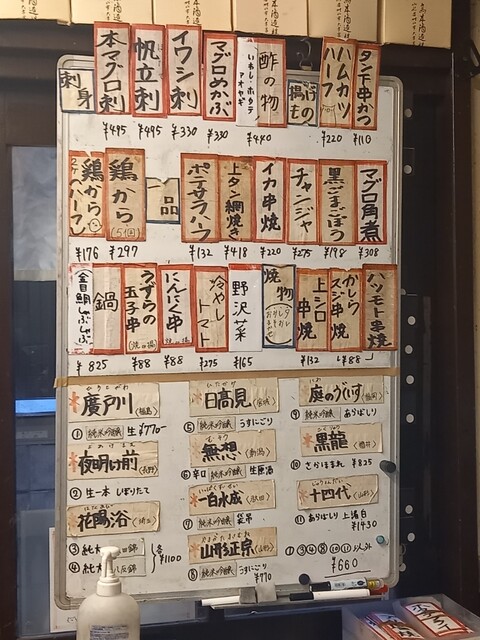 刺身
本マグロ刺
¥495
帆立刺
¥495
イワシ刺
¥330
マグロめかぶ
¥330
いわし・ホタテ
アオヤギ
酢の物
¥440
揚げもの
ハムカツ
ハーフ
¥220
タン下串かつ
¥110
鶏から
ハーフ
¥176
鶏から
(5個)
¥297
一品
ポテサラハーフ
¥132
上タン網焼き
¥418
イカ串焼
¥220
チャンジャ
¥275
黒ごまごぼう
¥198
マグロ角煮
¥308
金目鯛しゃぶしゃぶ
鍋
¥825
うずらの
玉子串
¥88
にんにく串
¥88
冷やし
トマト
¥275
野沢菜
¥165
焼物
上シロ
串焼
¥132
ガレク
スジ串焼
¥88
ハツモト串焼
廣戸川
〈福島〉
① 純米吟醸 生 ¥770
夜明け前
〈長野〉
② 生一本 しぼりたて
花陽浴
〈埼玉〉
各¥1100
日高見
〈宮城〉
⑤ 純米吟醸 うすにごり
無想
〈新潟〉
⑥ 辛口 純米吟醸 生原酒
一白水成
〈秋田〉
⑦ 純米吟醸 袋吊
山形正宗
〈山形〉
⑧ 純米吟醸 うすにごり
¥770
庭のうぐいす
〈福岡〉
⑨ 純米吟醸 あらばしり
黒龍
〈福井〉
⑩ さかほまれ ¥825
十四代
〈山形〉
⑪ あらばしり 上諸白
¥1430
①③④⑧⑩⑪以外
¥660